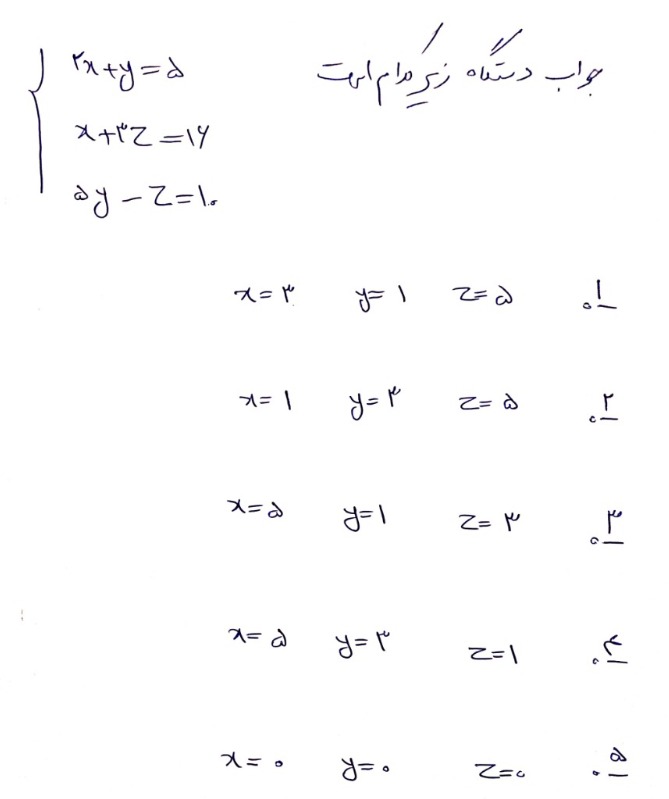 جواب دستگاه زیر کدام است
۲x+y=۵
x+۳z=۱۶
۵y-z=۱۰
x=۳ y=۱ z=۵ ۱.
x=۱ y=۳ z=۵ ۲.
x=۵ y=۱ z=۳ ۳.
x=۵ y=۳ z=۱ ۴.
x=۰ y=۰ z=۰ ۵.